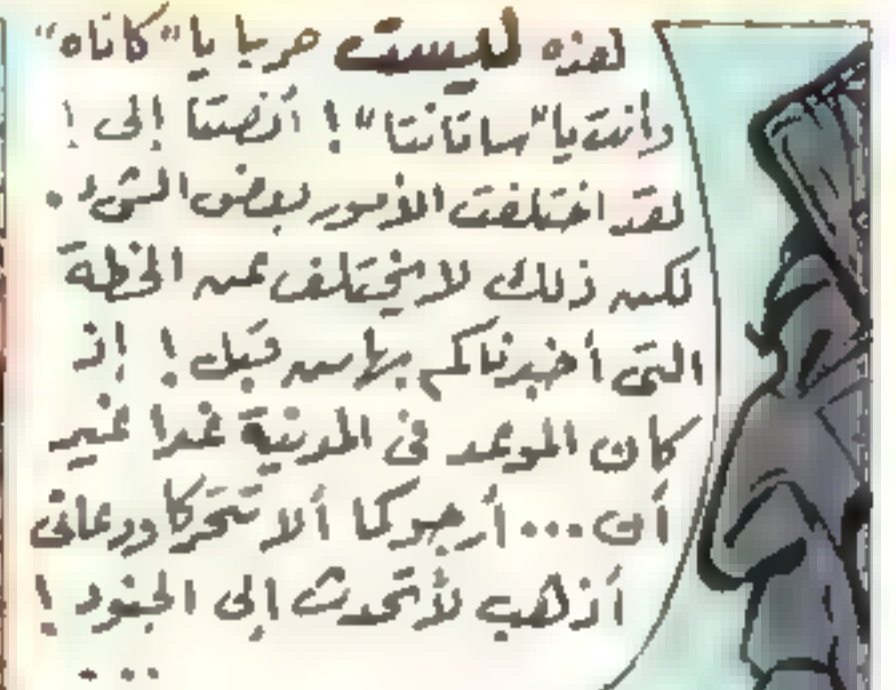 هذه ليست حربا يا "كاناه"
وأنت يا "ساتانتا" ! أنصتا إلى !
لقد اختلفت الأمور بعض الشىء .
لكن ذلك لا يختلف عن الخطة
التى أخبرناكم بها من قبل ! إذ
كان الموعد فى المدينة غدا غير
أن ... أرجوكما ألا تتحركا ودعانى
أذهب لأتحدث إلى الجنود !
...